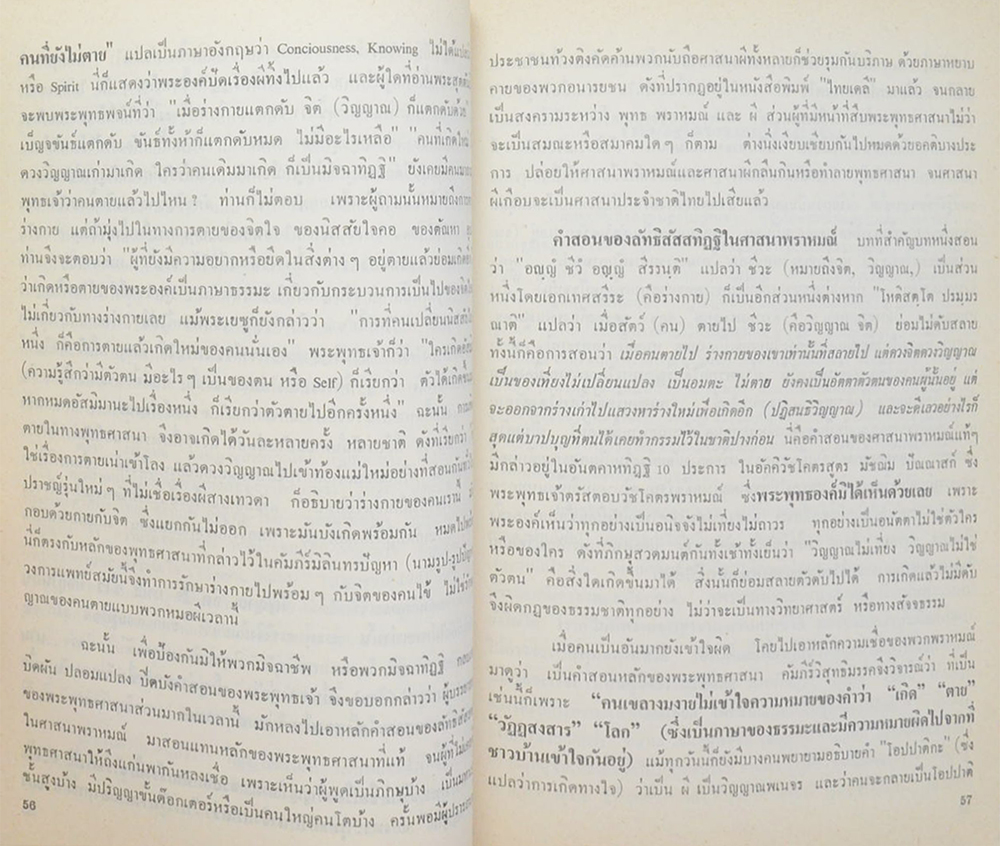 คนที่ยังไม่ตาย" แปลเป็นภาษาอังกฤษว่า Conciousness, Knowing ไม่ได้
หรือ Spirit นี่ก็แสดงว่าพระองค์ปัดเรื่องผีทิ้งไปแล้ว และผู้ใดที่อ่านพระสูตร
จะพบพระพุทธพจน์ที่ว่า "เมื่อร่างกายแตกดับ จิต (วิญญาณ) ก็แตกดับด้วย"
เบ็ญจขันธ์แตกดับ ขันธ์ทั้งห้าก็แตกดับหมด ไม่มีอะไรเหลือ" "คนที่เกิดใหม่
ดวงวิญญาณเก่ามาเกิด ใครว่าคนเดิมมาเกิด ก็เป็นมิจฉาทิฏฐิ" ยังเคยมีคน
พุทธเจ้าว่าคนตายแล้วไปไหน ? ท่านก็ไม่ตอบ เพราะผู้ถามนั้นหมายถึง
ร่างกาย แต่ถ้ามุ่งไปในทางการตายของจิตใจ ของนิสสัยใจคอ ของตัณหา
ท่านจึงจะตอบว่า "ผู้ที่ยังมีความอยากหรือยึดในสิ่งต่าง ๆ อยู่ตายแล้วย่อมเกิด
ว่าเกิดหรือตายของพระองค์เป็นภาษาธรรมะ เกี่ยวกับกระบวนการเป็นไปของ
ไม่เกี่ยวกับทางร่างกายเลย แม้พระเยซูก็ยังกล่าวว่า "การที่คนเปลี่ยนนิสสัย
หนึ่ง ก็คือการตายแล้วเกิดใหม่ของคนนั่นเอง" พระพุทธเจ้าก็ว่า "ใครเกิด
(ความรู้สึกว่ามีตัวตน มีอะไร ๆ เป็นของตน หรือ Self) ก็เรียกว่า ตัวได้เกิดขึ้น
หากหมดอัสมิมานะไปเรื่องหนึ่ง ก็เรียกว่าตัวตายไปอีกครั้งหนึ่ง" ฉะนั้น
ตายในทางพุทธศาสนา จึงอาจเกิดได้วันละหลายครั้ง หลายชาติ ดังที่เรียกว่า
ใช่เรื่องการตายเน่าเข้าโลง แล้วดวงวิญญาณไปเข้าท้องแม่ใหม่อย่างที่สอนกัน
ปราชญ์รุ่นใหม่ ๆ ที่ไม่เชื่อเรื่องผีสางเทวดา ก็อธิบายว่าร่างกายของคนเรานี้
กอบด้วยกายกับจิต ซึ่งแยกกันไม่ออก เพราะมันบังเกิดพร้อมกัน หมดไป
นี่ก็ตรงกับหลักของพุทธศาสนาที่กล่าวไว้ในคัมภีร์มิลินทรปัญหา (นามรูป-รูป
วงการแพทย์สมัยนี้จึงทำการรักษาร่างกายไปพร้อม ๆ กับจิตของคนไข้ ไม่ใช่
ญาณของคนตายแบบพวกหมอผีเวลานี้
ฉะนั้น เพื่อป้องกันมิให้พวกมิจฉาชีพ หรือพวกมิจฉาทิฏฐิ
บิดผัน ปลอมแปลง ปิดบังคำสอนของพระพุทธเจ้า จึงขอบอกกล่าวว่า
ของพระพุทธศาสนาส่วนมากในเวลานี้ มักหลงไปเอาหลักคำสอนของลัทธิ
ในศาสนาพราหมณ์ มาสอนแทนหลักของพระพุทธศาสนาที่แท้ จนผู้ที่ไม่
พุทธศาสนาให้ถึงแก่นพากันหลงเชื่อ เพราะเห็นว่าผู้พูดเป็นภิกษุบ้าง เป็น
ชั้นสูงบ้าง มีปริญญาขั้นด๊อกเตอร์หรือเป็นคนใหญ่คนโตบ้าง ครั้นพอมีผู้
56
ประชาชนท้วงติงคัดค้านพวกนับถือศาสนาผีทั้งหลายก็ช่วยรุมกันบริภาษ ด้วยภาษาหยาบ
คายของพวกอนารยชน ดังที่ปรากฏอยู่ในหนังสือพิมพ์ "ไทยเดลี" มาแล้ว จนกลาย
เป็นสงครามระหว่าง พุทธ พราหมณ์ และ ผี ส่วนผู้ที่มีหน้าที่สืบพระพุทธศาสนาไม่ว่า
จะเป็นสมณะหรือสมาคมใด ๆ ก็ตาม ต่างนิ่งเงียบเชียบกันไปหมดด้วยอคติบางประ
การ ปล่อยให้ศาสนาพราหมณ์และศาสนาผีกลืนกินหรือทำลายพุทธศาสนา จนศาสนา
ผีเกือบจะเป็นศาสนาประจำชาติไทยไปเสียแล้ว
คำสอนของลัทธิสัสสทิฏฐิในศาสนาพราหมณ์ บทที่สำคัญบทหนึ่งสอน
ว่า "อญฺญํ ชีวํ อญฺญํ สรีรนฺติ" แปลว่า ชีวะ (หมายถึงจิต, วิญญาณ,) เป็นส่วน
หนึ่งโดยเอกเทศสรีระ (คือร่างกาย) ก็เป็นอีกส่วนหนึ่งต่างหาก "โหติสตฺโต ปรมฺมร
ณาติ" แปลว่า เมื่อสัตว์ (คน) ตายไป ชีวะ (คือวิญญาณ จิต) ย่อมไม่ดับสลาย
ทั้งนี้ก็คือการสอนว่า เมื่อคนตายไป ร่างกายของเขาเท่านั้นที่สลายไป แต่ดวงจิตดวงวิญญาณ
เป็นของเที่ยงไม่เปลี่ยนแปลง เป็นอมตะ ไม่ตาย ยังคงเป็นอัตตาตัวตนของคนผู้นั้นอยู่ แต่
จะออกจากร่างเก่าไปแสวงหาร่างใหม่เพื่อเกิดอีก (ปฏิสนธิวิญญาณ) และจะดีเลวอย่างไรก็
สุดแต่บาปบุญที่ตนได้เคยทำกรรมไว้ในชาติปางก่อน นี่คือคำสอนของศาสนาพราหมณ์แท้ๆ
มีกล่าวอยู่ในอันตคาหทิฏฐิ 10 ประการ ในอัคคิวัชโคตรสูตร มัชฌิม ปัณณาสก์ ซึ่ง
พระพุทธเจ้าตรัสตอบวัชโคตรพราหมณ์ ซึ่งพระพุทธองค์มิได้เห็นด้วยเลย เพราะ
พระองค์เห็นว่าทุกอย่างเป็นอนิจจังไม่เที่ยงไม่ถาวร ทุกอย่างเป็นอนัตตาไม่ใช่ตัวใคร
หรือของใคร ดังที่ภิกษุสวดมนต์กันทั้งเช้าทั้งเย็นว่า "วิญญาณไม่เที่ยง วิญญาณไม่ใช่
ตัวตน" คือสิ่งใดเกิดขึ้นมาได้ สิ่งนั้นก็ย่อมสลายตัวดับไปได้ การเกิดแล้วไม่มีดับ
จึงผิดกฎของธรรมชาติทุกอย่าง ไม่ว่าจะเป็นทางวิทยาศาสตร์ หรือทางสัจจธรรม
เมื่อคนเป็นอันมากยังเข้าใจผิด โดยไปเอาหลักความเชื่อของพวกพราหมณ์
มาดูว่า เป็นคำสอนหลักของพระพุทธศาสนา คัมภีร์วิสุทธิมรรคจึงวิจารณ์ว่า ที่เป็น
เช่นนี้ก็เพราะ "คนเขลางมงายไม่เข้าใจความหมายของคำว่า "เกิด" "ตาย"
"วัฏฏสงสาร" "โลก" (ซึ่งเป็นภาษาของธรรมะและมีความหมายผิดไปจากที่
ชาวบ้านเข้าใจกันอยู่) แม้ทุกวันนี้ก็ยังมีบางคนพยายามอธิบายคำ "โอปปาติกะ" (ซึ่ง
แปลว่าการเกิดทางใจ) ว่าเป็น ผี เป็นวิญญาณพเนจร และว่าคนจะกลายเป็นโอปปาติ
57